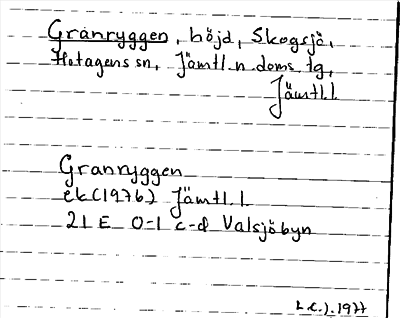 Granryggen, höjd, Skogsjö,
Hotagens sn, Jämtl. n. doms. tg,
Jämtl. l.
Granryggen
ek (1976) Jämtl. l.
21 E 0-1 c-d Valsjöbyn
1977